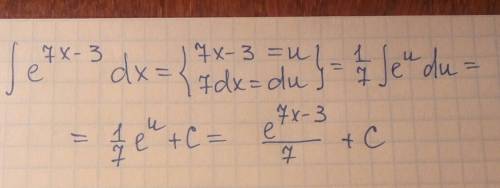 ∫e^{7x-3} dx = {7x-3 = u
7dx = du} = 1/7 ∫e^u du =
= 1/7 e^u + C = e^{7x-3}/7 + C